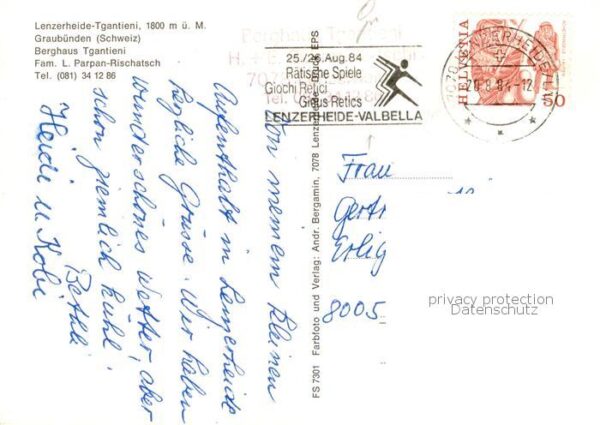 Lenzerheide-Tgantieni, 1800 m ü. M.
Graubünden (Schweiz)
Berghaus Tgantieni
Fam. L. Parpan-Rischatsch
Tel. (081) 34 12 86
Berghaus Tgantieni
25./26. Aug. 84
Rätische Spiele
Giochi Retici
Gieus Retics
LENZERHEIDE-VALBELLA
HELVETIA
50
20.8.84-12
Von meinem kleinen
Aufenthalt in Lenzerheide
herzliche Grüsse. Wir haben
wunderschönes Wetter, aber
schon ziemlich kühl!
Bethli
Heidi u Kobi
FS 7301 Farbfoto und Verlag: Andr. Bergamin, 7078 Lenzerheide Druck: EPS
Frau
Gertr
8005
privacy protection
Datenschutz